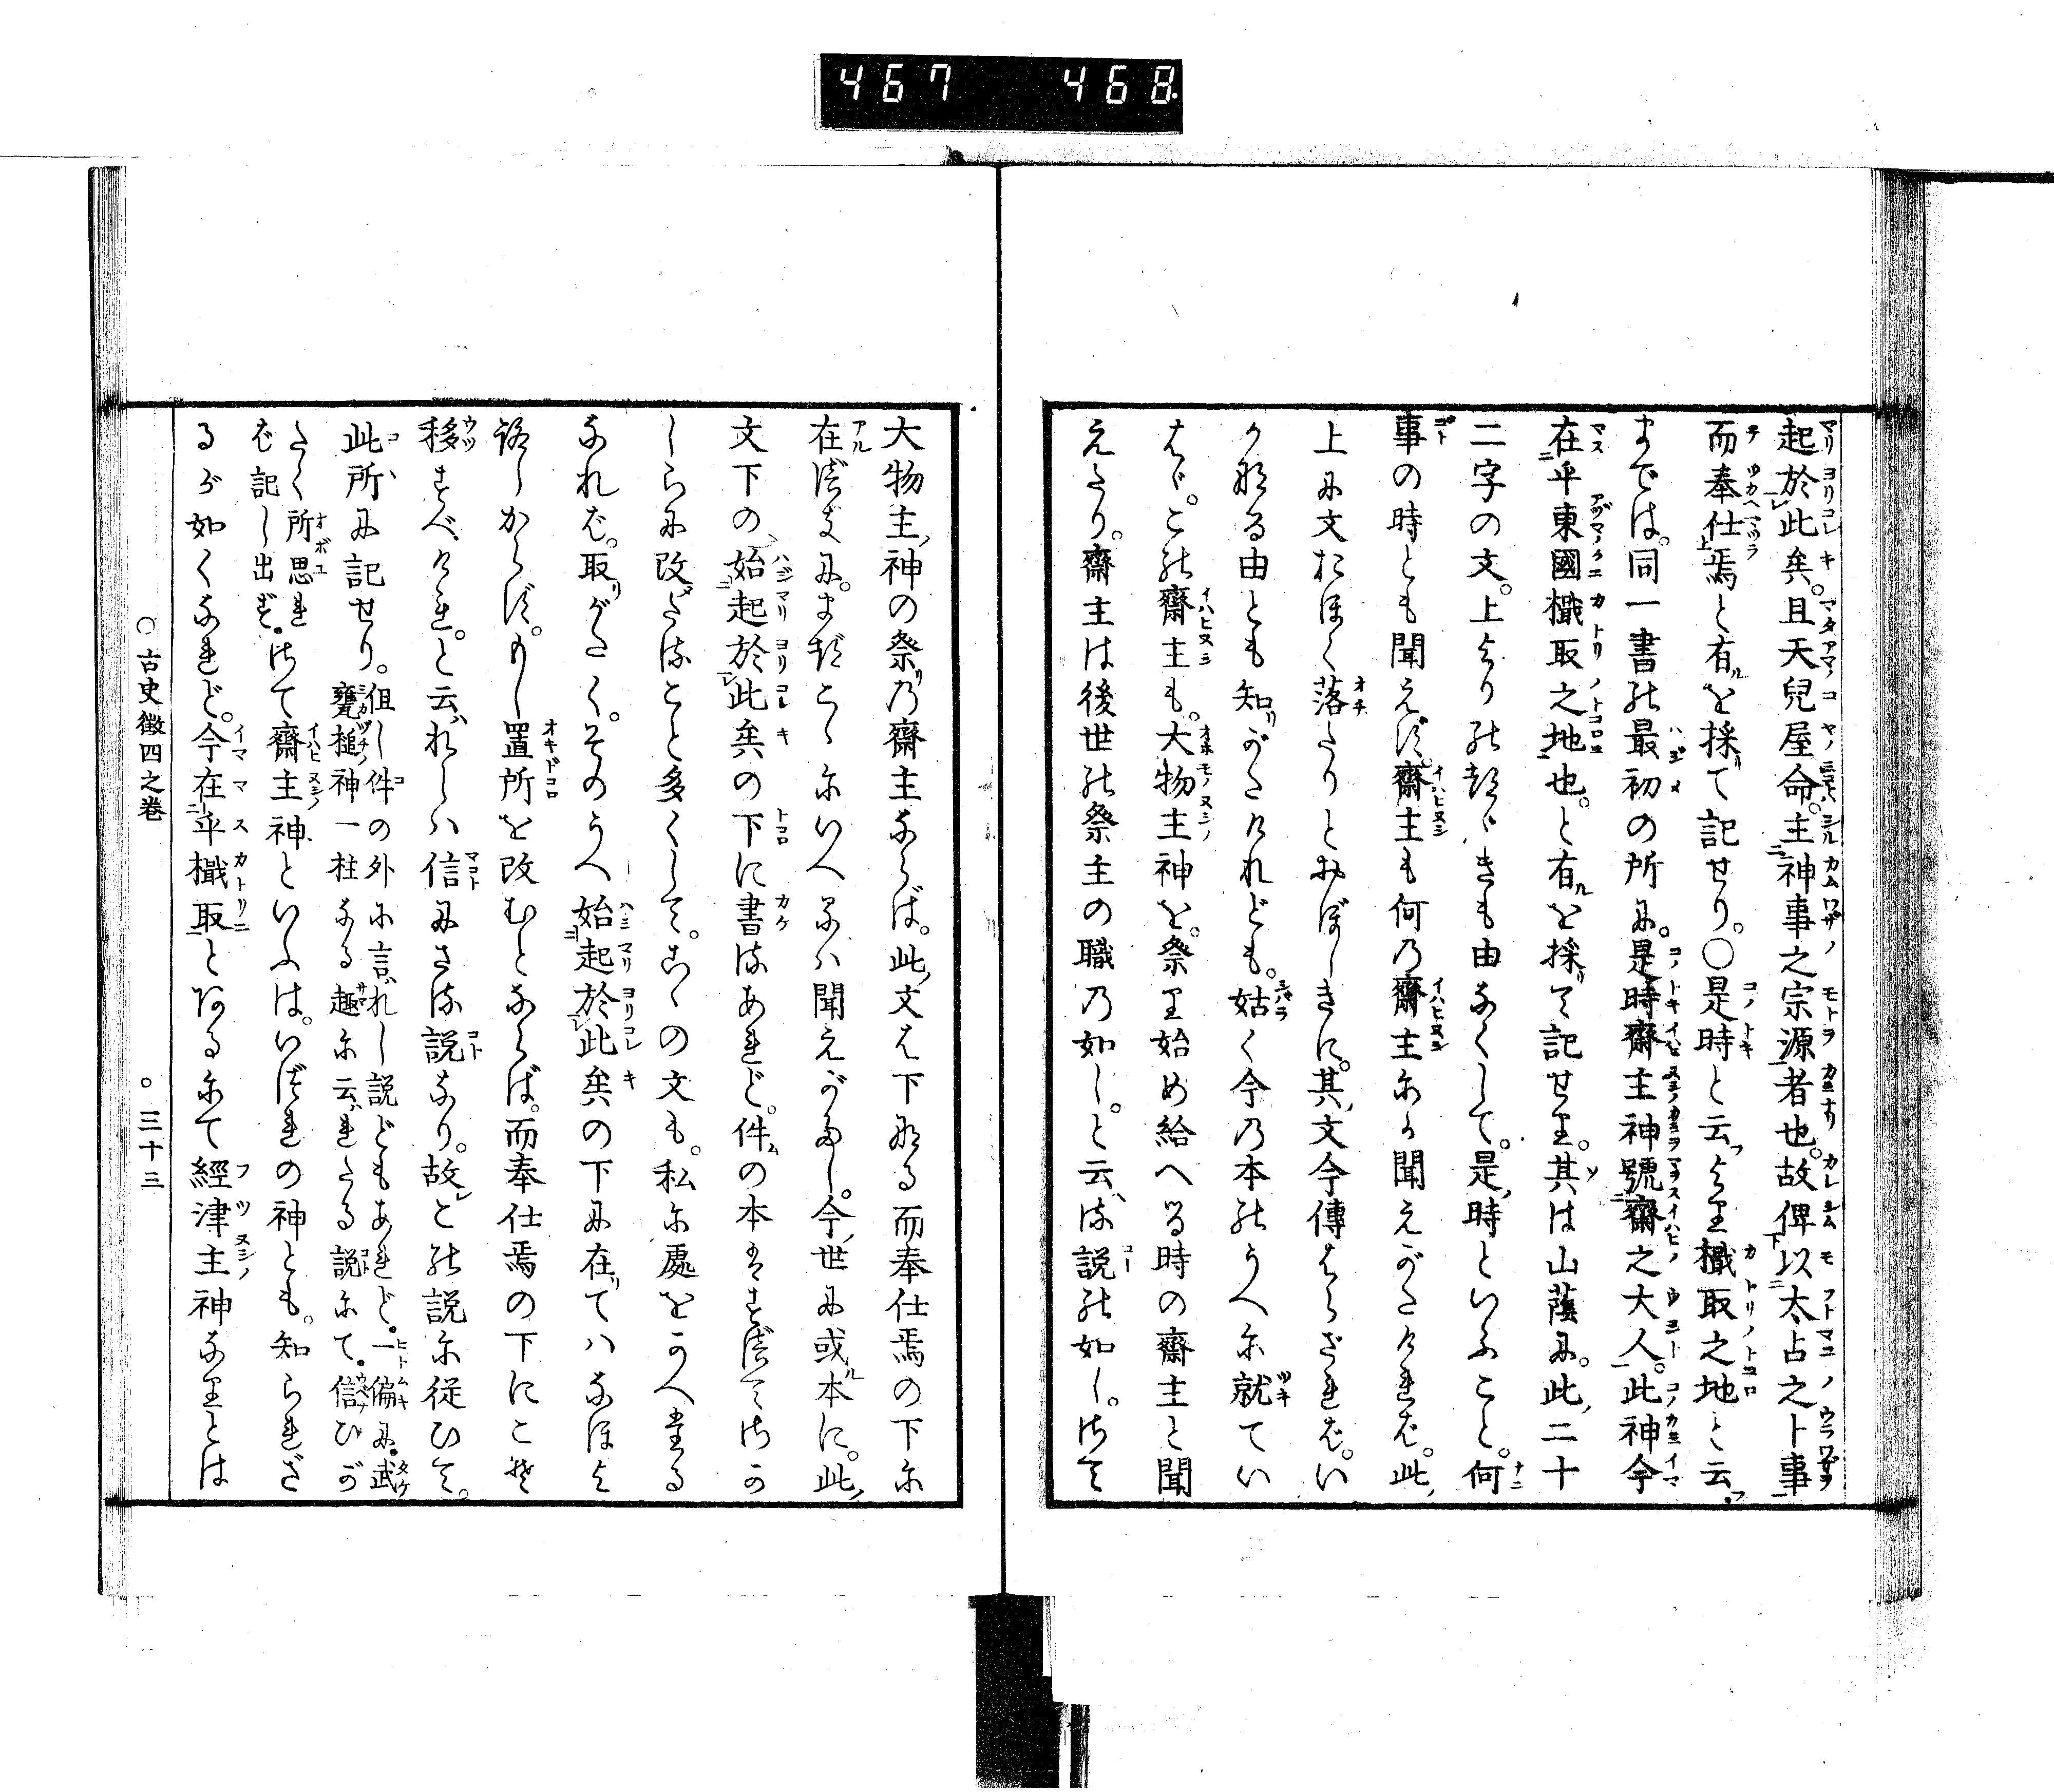 467 468
起於此矣。且天兒屋命。主神事之宗源者也。故俾以太占之卜事
而奉仕焉と有を採て記せり。〇是時と云より檝取之地と云
までは。同一書の最初の所に。是時齋主神號齋之大人。此神今
在乎東國檝取之地也。と有を採て記せり。其は山蔭に。此二十
二字の文。上よりの都づきも由なくして。是時といふこと。何
事の時とも聞えず。齋主も何乃齋主にか聞えがたければ。此
上に文おほく落たりとおぼしきに。其文今傳はらざれば。い
かなる由とも知がたけれども。姑く今乃本のうへに就てい
はゞ。この齋主も。大物主神を。祭り始め給へる時の齋主と聞
えたり。齋主は後世の祭主の職乃如し。と云る説の如し。さて
大物主神の祭乃齋主ならば。此文は下なる而奉仕焉の下に
在べきに。まづこゝにいへるは聞えがたし。今世に或本に。此
文下の始起於此矣の下に書るあれど。件の本はすべてさか
しらに改たること多くして。こゝの文も。私に處をかへたる
なれば。取がたく。そのうへ始起於此矣の下に在てはなほよ
ろしからず。もし置所を改むとならば。而奉仕焉の下にこそ
移すべけれ。と云れしは信にさる説なり。故との説に從ひて。
此所に記せり。但し件の外に言れし説どもあれど。一偏に。武
甕槌神一柱なる趣に云れたる説にて。信ひが
たく所思れば記し出ず。さて齋主神といふは。いづれの神とも。知られざ
るが如くなれど。今在乎檝取とあるにて經津主神なりとは
〇古史徴四之卷 〇三十三